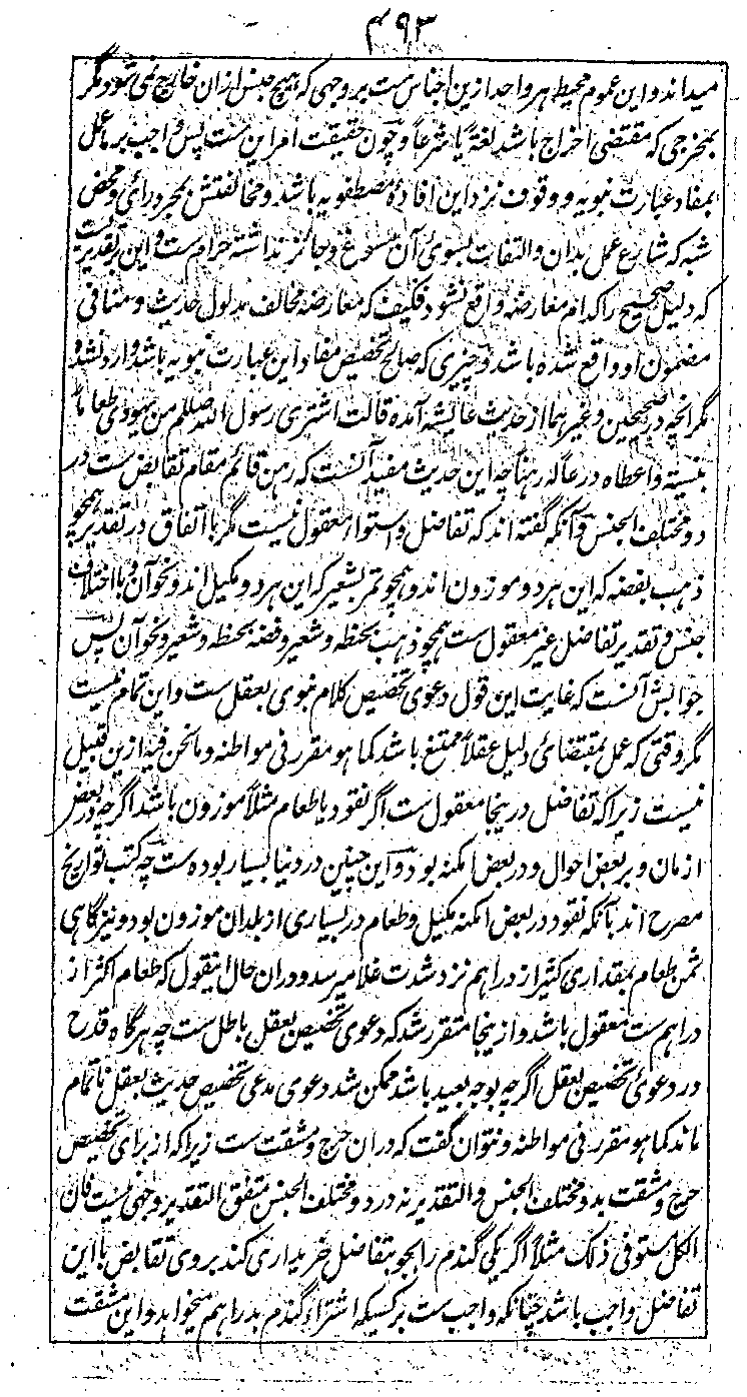 ۴۹۳
میداند و این عموم محیط هر واحد ازین اجناس ست بر وجهی که هیچ جنس ازان خارج نمی شود مگر
بمخرجی که مقتضی اخراج باشد لغةً یا شرعاً و چون حقیقت امر این ست پس واجب بر ما عمل
بمفاد عبارت نبویه و وقوف نزد این افادهٔ مصطفویه باشد و مخالفتش بمجرد رائی و محض
شبه که شارع عمل بدان و التفات بسوی آن مسوغ و جائز نداشته حرام ست و این بتقدیریست
که دلیل صحیح را کدام معارضه واقع نشود فکیف که معارضه مخالف مدلول حدیث و منافی
مضمون او واقع شده باشد و چیزی که صالح تخصیص مفاد این عبارت نبویه باشد وارد نشد
مگر انچه در صحیحین و غیرهما از حدیث عائیشه آمده قالت اشتری رسول الله صللم من یهودی طعاماً
بنسیئة و اعطاه درعاً له رهناً چه این حدیث مفید آنست که رهن قائم مقام تقابض ست در
دو مختلف الجنس و آنکه گفته اند که تفاضل و استوا معقول نیست مگر با اتفاق در تقدیر همچو
ذهب بفضه که این هر دو موزون اند و همچو تمر بشعیر که این هر دو مکیل اند و نحو آن و با اختلاف
جنس و تقدیر تفاضل غیر معقول ست همچو ذهب بحنطه و شعیر و فضه بحنطه و شعیر و نحو آن پس
جوابش آنست که غایت این قول دعوی تخصیص کلام نبوی بعقل ست و این تمام نیست
مگر وقتی که عمل بمقتضای دلیل عقلاً ممتنع باشد کما هو مقرر فی مواطنه و ما نحن فیه ازین قبیل
نیست زیرا که تفاضل درینجا معقول ست اگر نقود یا طعام مثلاً موزون باشد اگرچه در بعض
ازمان و بر بعض احوال و در بعض امکنه بود و این چنین در دنیا بسیار بوده ست چه کتب تواریخ
مصرح اند بآنکه نقود در بعض امکنه مکیل و طعام در بسیاری از بلدان موزون بود و نیز گاهی
ثمن طعام بمقداری کثیر از دراهم نزد شدت غلا میرسد و دران حال اینقول که طعام اکثر از
دراهم ست معقول باشد و ازینجا متقرر شد که دعوی تخصیص بعقل باطل ست چه هرگاه قدح
در دعوی تخصیص بعقل اگرچه بوجه بعید باشد ممکن شد دعوی مدعی تخصیص حدیث بعقل ناتمام
ماند کما هو مقرر فی مواطنه و نتوان گفت که دران حرج و مشقت ست زیرا که از برای تخصیص
حرج و مشقت بدو مختلف الجنس و التقدیر نه در دو مختلف الجنس متفق التقدیر وجهی نیست فان
الکل مستو فی ذلک مثلاً اگر یکی گندم را بجو بتفاضل خریداری کند بر وی تقابض با این
تفاضل واجب باشد چنانکه واجب ست بر کسیکه اشتراء گندم بدراهم میخواهد و این مشقت